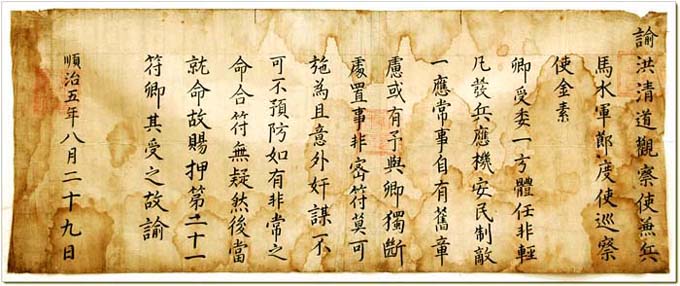 諭洪清道觀察使兼兵
馬水軍節度使巡察
使金素
卿受委一方體任非輕
凡發兵應機安民制敵
一應常事自有舊章
慮或有予與卿獨斷
處置事非密符莫可
施為且意外奸謀不
可不預防如有非常之
命合符無疑然後當
就命故賜押第二十一
符卿其受之故諭
順治五年八月二十九日